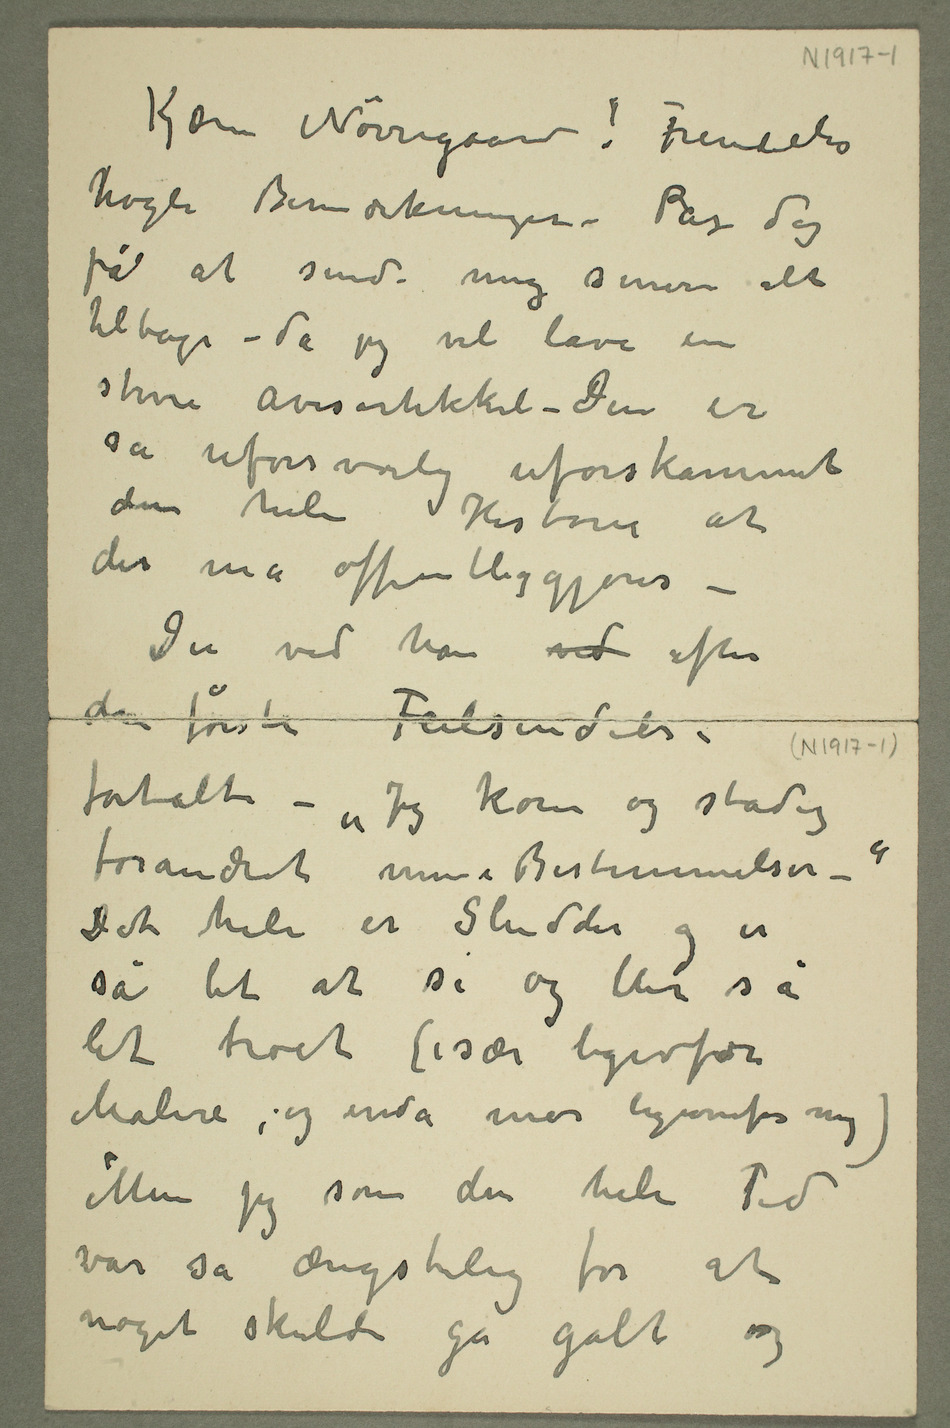 N1917-1
Kjære Nörregaard! Fremdeles
nogle Bemærkninger – Pas dog
på at sende mig senere alt
tilbage – da jeg vil lave en
större avisartikkel – Den er
så uforsvarlig uforskammet
den hele Historie at
det må offentliggjøres –
Du ved han ved efter
den förste Feilsendelse
(N1917-1)
fortalte – „Jeg kom og stadig
forandret mine Bestemmelser – “
Det hele er Sludder og er
så let at si og blir så
let troet (især ligeoffor
Malere, og enda mer ligeoverfor mig)
Men jeg som den hele Tid
var så ængstelig for at
noget skulde gå galt og